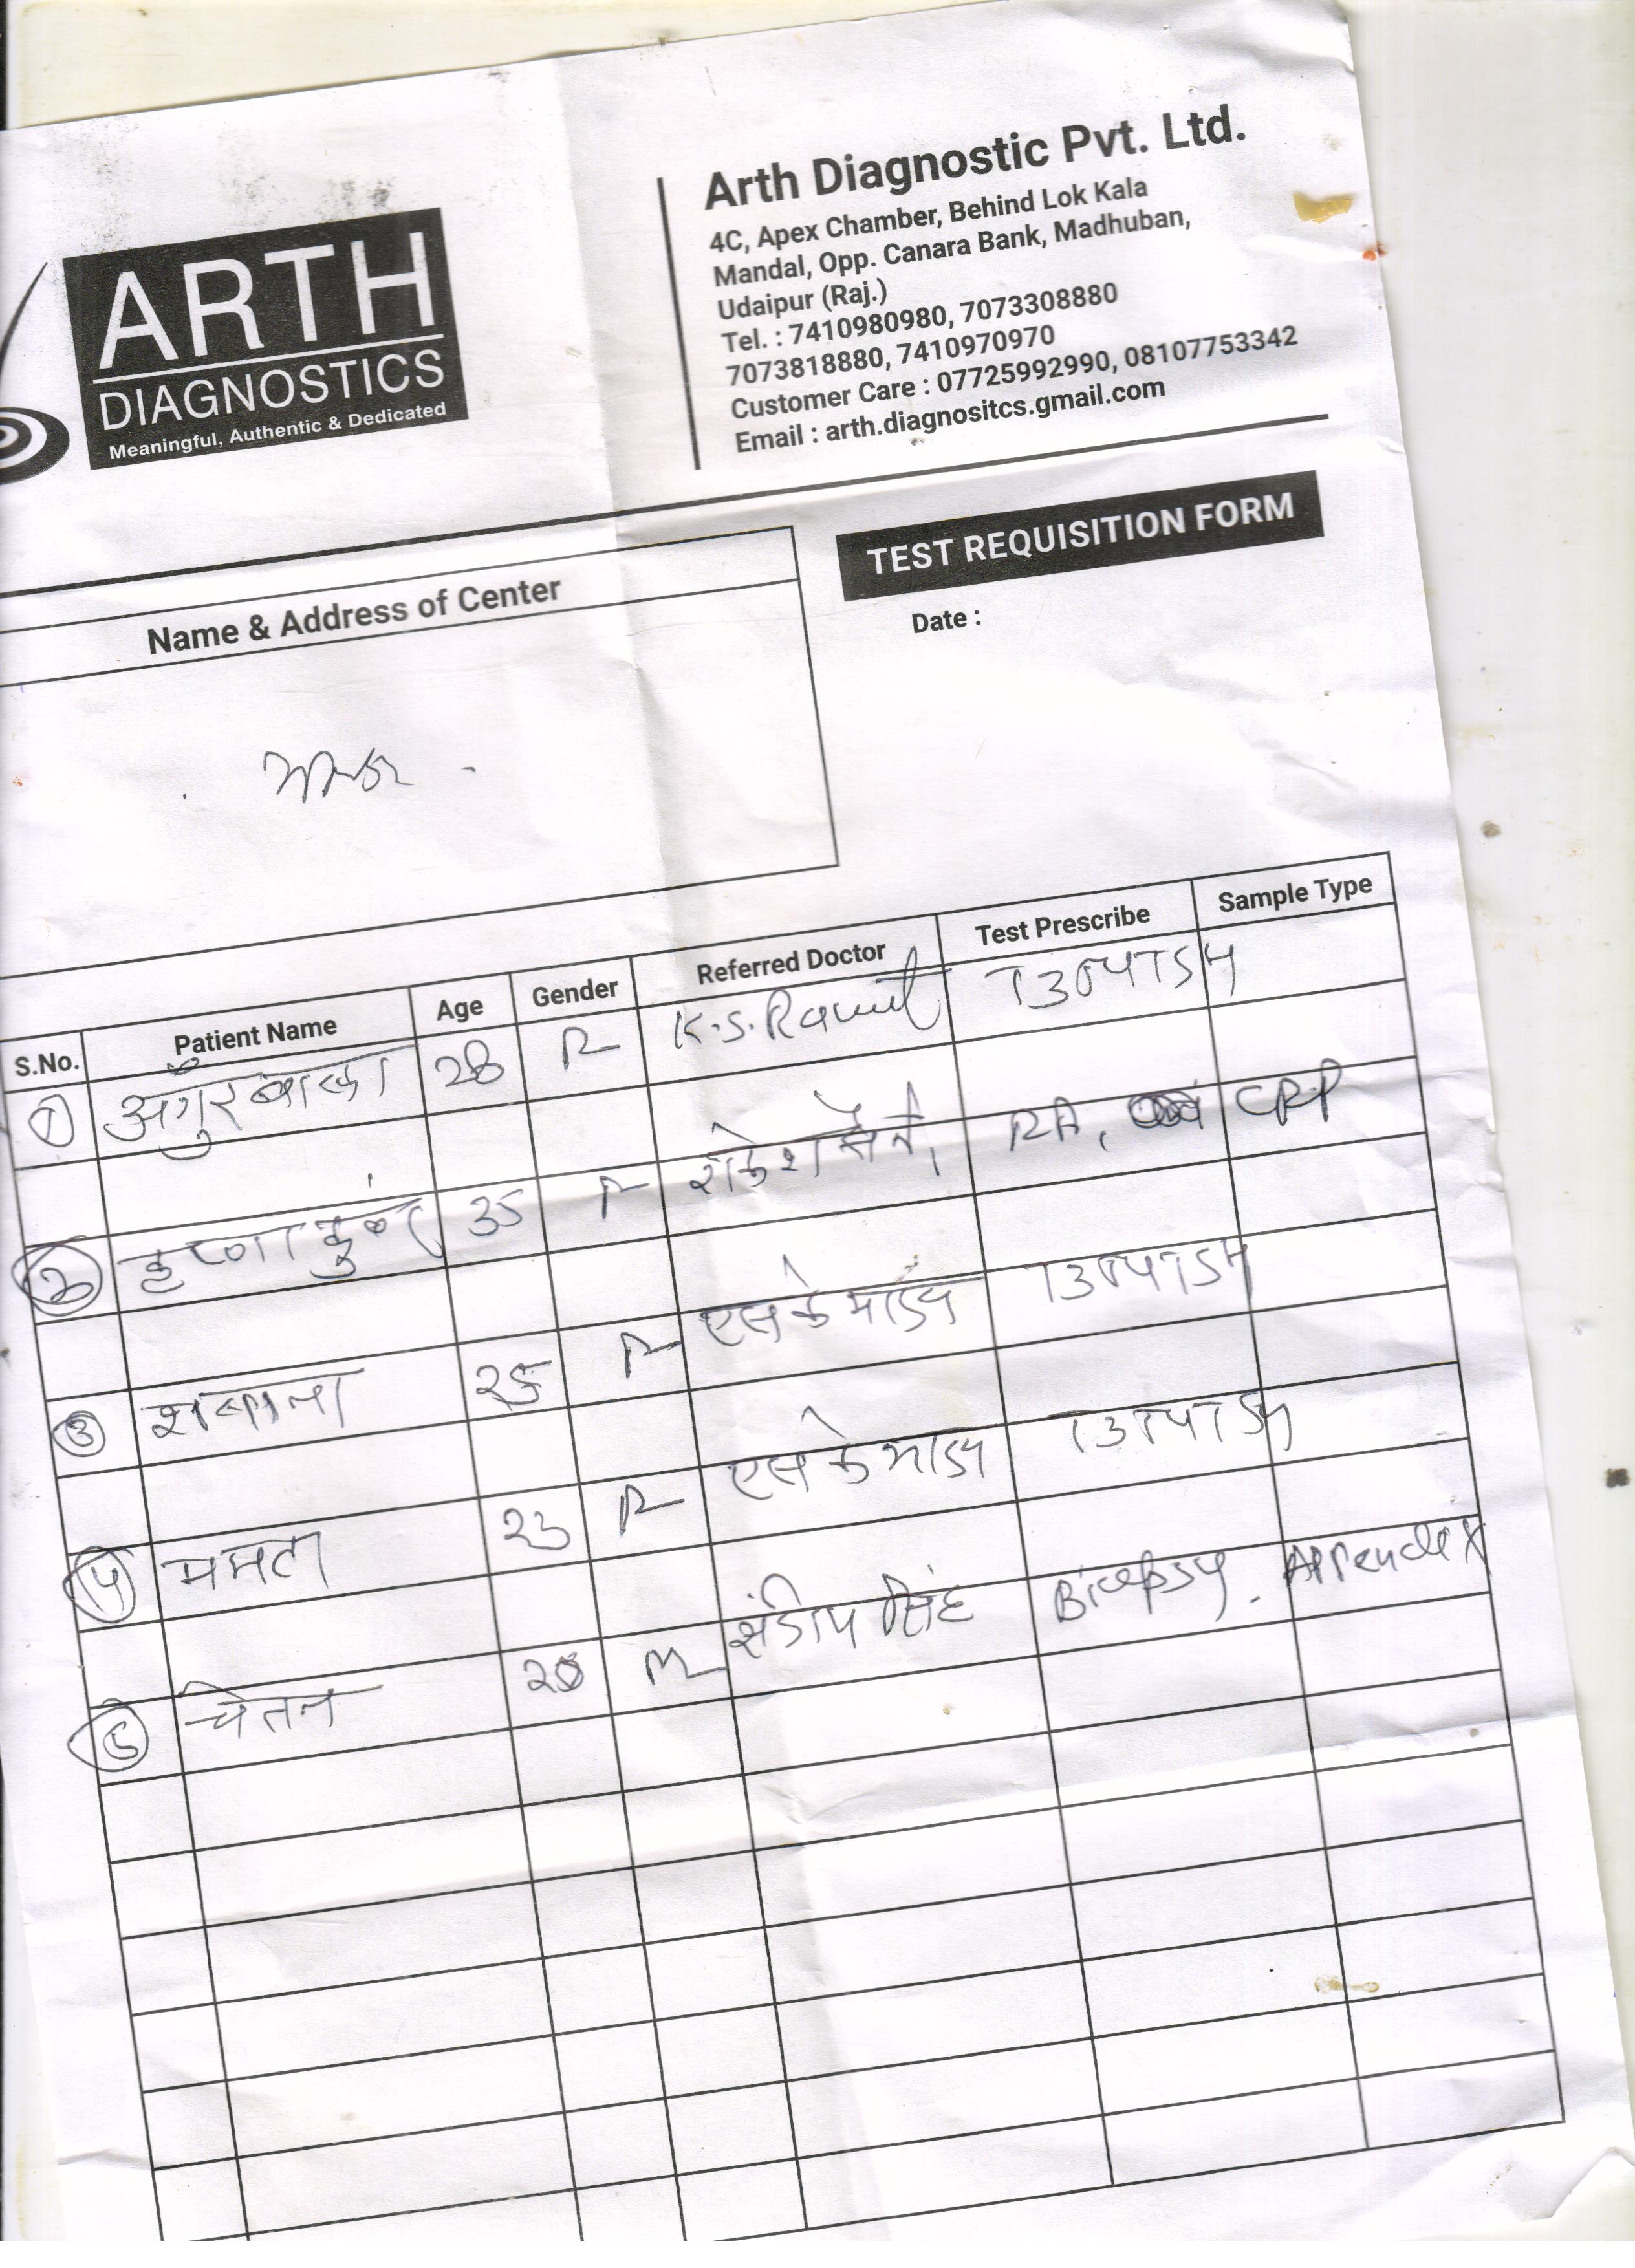 ARTH
DIAGNOSTICS
Meaningful, Authentic & Dedicated
Arth Diagnostic Pvt. Ltd.
4C, Apex Chamber, Behind Lok Kala
Mandal, Opp. Canara Bank, Madhuban,
Udaipur (Raj.)
Tel. : 7410980980, 7073308880
7073818880, 7410970970
Customer Care : 07725992990, 08107753342
Email : arth.diagnositcs.gmail.com
TEST REQUISITION FORM
Date :
Name & Address of Center
S.No. Patient Name Age Gender Referred Doctor Test Prescribe Sample Type
1 अंगुरबाला 28 F K.S. T3T4TSH
2 कृष्णा कुंवर 35 F राकेश सैनी RA, CRP
3 शबाना 25 F एस के T3T4TSH
4 ममता 23 F एस के T3T4TSH
5 चेतन M संदीप सिंह Biopsy. Appendix